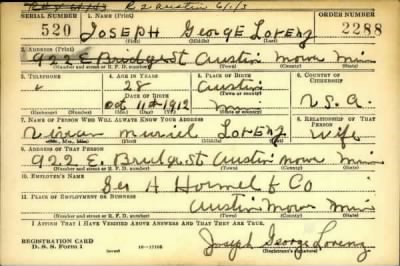 R 2 Austin 6/1/3
SERIAL NUMBER 1. NAME (Print) ORDER NUMBER
520 JOSEPH GEORGE LORENZ 2288
(First) (Middle) (Last)
2. ADDRESS (Print)
922 E Bridge St Austin Mower Minn
(Number and street or R. F. D. number) (Town) (County) (State)
3. TELEPHONE 4. AGE IN YEARS 5. PLACE OF BIRTH 6. COUNTRY OF CITIZENSHIP
28 Austin
DATE OF BIRTH (Town or county)
Oct 11th 1912 Minn U.S.A.
(Exchange) (No.) (Mo.) (Day) (Yr.) (State or country)
7. NAME OF PERSON WHO WILL ALWAYS KNOW YOUR ADDRESS 8. RELATIONSHIP OF THAT PERSON
Vivian Muriel Lorenz Wife
(Mr., Mrs., Miss) (First) (Middle) (Last)
9. ADDRESS OF THAT PERSON
922 E. Bridge St Austin Mower Minn
(Number and street or R. F. D. number) (Town) (County) (State)
10. EMPLOYER'S NAME
Geo A Hormel & Co
11. PLACE OF EMPLOYMENT OR BUSINESS
Austin Mower Minn
(Number and street or R. F. D. number) (Town) (County) (State)
I AFFIRM THAT I HAVE VERIFIED ABOVE ANSWERS AND THAT THEY ARE TRUE.
REGISTRATION CARD
D. S. S. Form 1 16-17105 Joseph George Lorenz
(Registrant's signature)